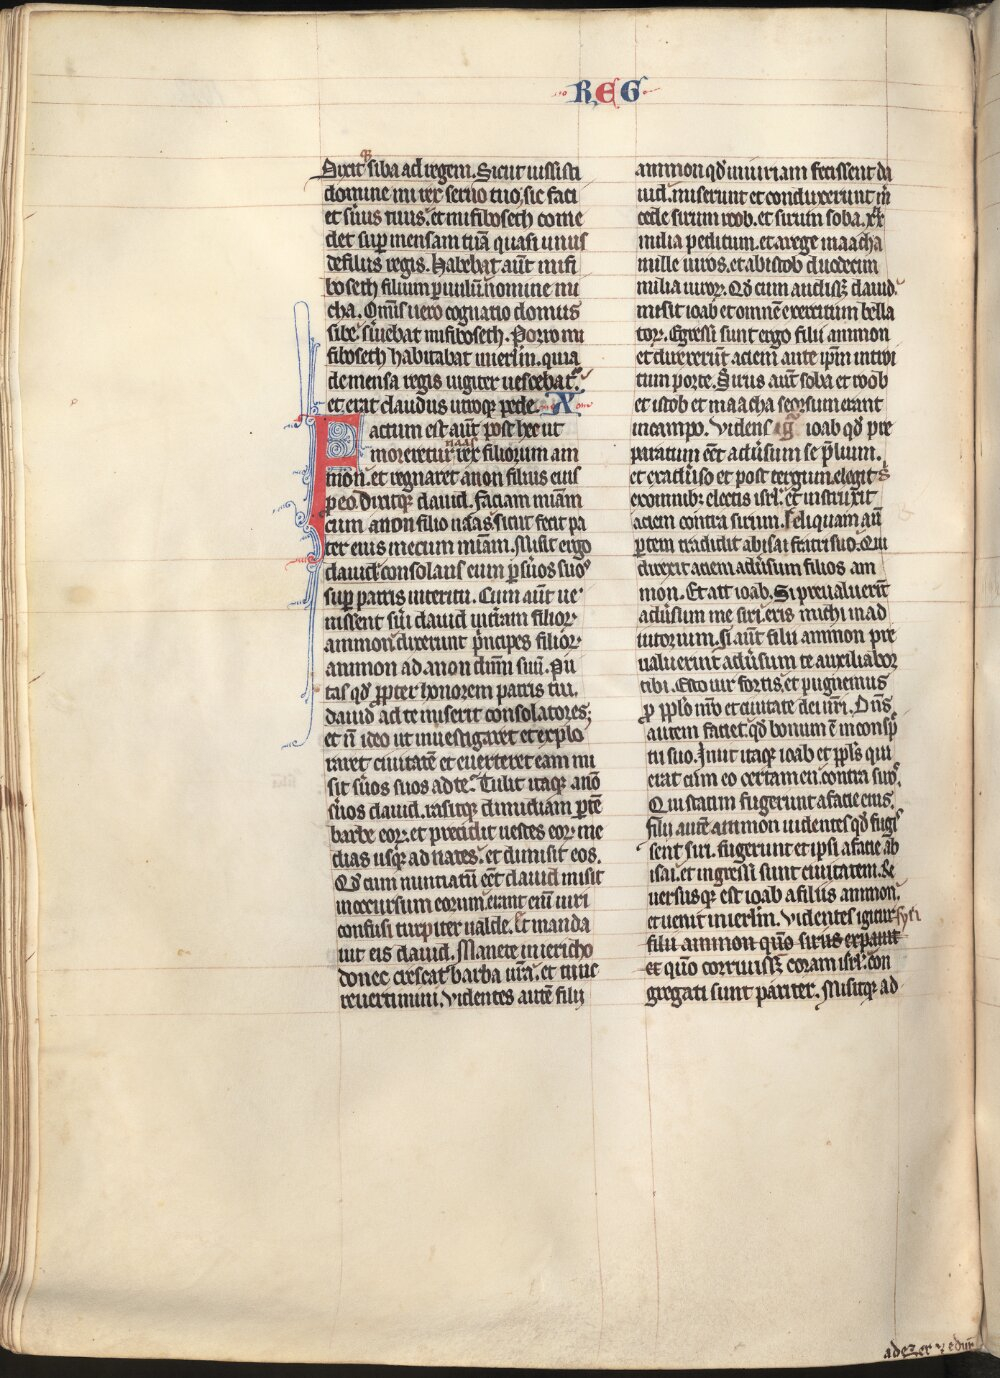 REG
Dixitq siba ad regem. Sicut iussisti
domine mi rex seruo tuo, sic faci
et s̄uus tuus. et mifiboseth come
det sup mensam tuā quasi unus
de filiis regis. Habebat aūt mifi
boseth filium ꝑuulū nomine mi
cha. Om̄s uero cognatio domus
sibe s̄uiebat mifiboseth. Porro mi
fiboseth habitabat in ierlm̄. quia
de mensa regis iugiter uescebat.
et erat claudus utroqꝫ pede. X
Factum est aūt post hec ut
moreretur naas rex filiorum am
mon. et regnaret anon filius eius
p eo. dixitqꝫ dauid. Faciam mīam
cum anon filio naas. sicut fecit pa
ter eius mecum mīam. Misit ergo
dauid consolans eum ꝑ s̄uos suos
sup patris interitu. Cum aūt ue
nissent s̄ui dauid in t̄ram filioꝝ
ammon. dixerunt p̄ncipes filioꝝ
ammon ad anon dn̄m suū. Pu
tas qd̄ ꝓpter honorem patris tui.
dauid ad te miserit consolatores;
et n̄ ideo ut inuestigaret et explo
raret ciuitatē et euerteret eam mi
sit s̄uos suos ad te. Tulit itaqꝫ anō
s̄uos dauid. rasitqꝫ dimidiam ꝑtē
barbe eoꝝ. et precidit uestes eoꝝ me
dias usqꝫ ad nates. et dimisit eos.
Qd̄ cum nuntiatū eēt dauid misit
in occursum eorum. erant enī uiri
confusi turpiter ualde. Et manda
uit eis dauid. Manete in iericho
donec crescat barba ur̄a. et tunc
reuertimini. Videntes autē filii
ammon qd̄ iniuriam fecissent da
uid. miserunt et conduxerunt m̄
cede sirum roob. et sirum soba. xx
milia peditum. et a rege maacha
mille uiros. et ab istob duodecim
milia uiroꝝ. Qd̄ cum audissꝫ dauid.
misit ioab et omnē exercitum bella
toꝝ. Egressi sunt ergo filii ammon
et direxerūt aciem ante ip̄m introi
tum porte. Sirus aūt soba et roob
et istob et maacha seorsum erant
in campo. Videns iḡ ioab qd̄ pre
paratum eēt adūsum se p̄lium.
et ex adūso et post tergum. elegit s̄
ex omnibꝫ electis isrl̄. et instruxit
aciem contra sirum. Reliquam aū
ꝑtem tradidit abisai fratri suo. Qui
direxit aciem adūsum filios am
mon. Et ait ioab. Si preualuerīt
adūsum me siri. eris michi in ad
iutorium. si aūt filii ammon pre
ualuerint adūsum te auxiliabor
tibi. Esto uir fortis et pugnemus
ꝓ pplo nr̄o et ciuitate dei nr̄i. Dn̄s
autem faciet qd̄ bonum ē in consp̄
tu suo. Iniit itaqꝫ ioab et ppl̄s qui
erat cum eo certamen contra siros.
Qui statim fugerunt a facie eius.
filii autē ammon uidentes qd̄ fugis
sent siri. fugerunt et ipsi a facie ab
isai. et ingressi sunt ciuitatem. Re
uersusqꝫ est ioab a filiis ammon.
et uenit in ierlm̄. Videntes igitur syri
filii ammon quō sirus expauit
et quō corruissꝫ coram isrl̄. con
gregati sunt pariter. Misitqꝫ ad